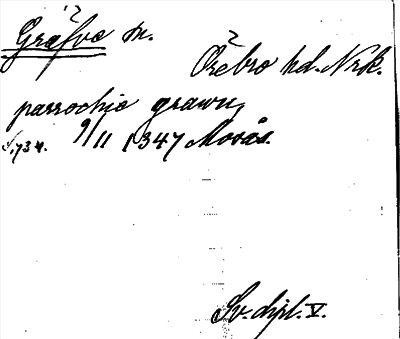 Gräfve sn.
Örebro hd. Nrk.
parrochie grawu
S. 734. 9/11 1347 Mosås.
Sv. dipl. V.